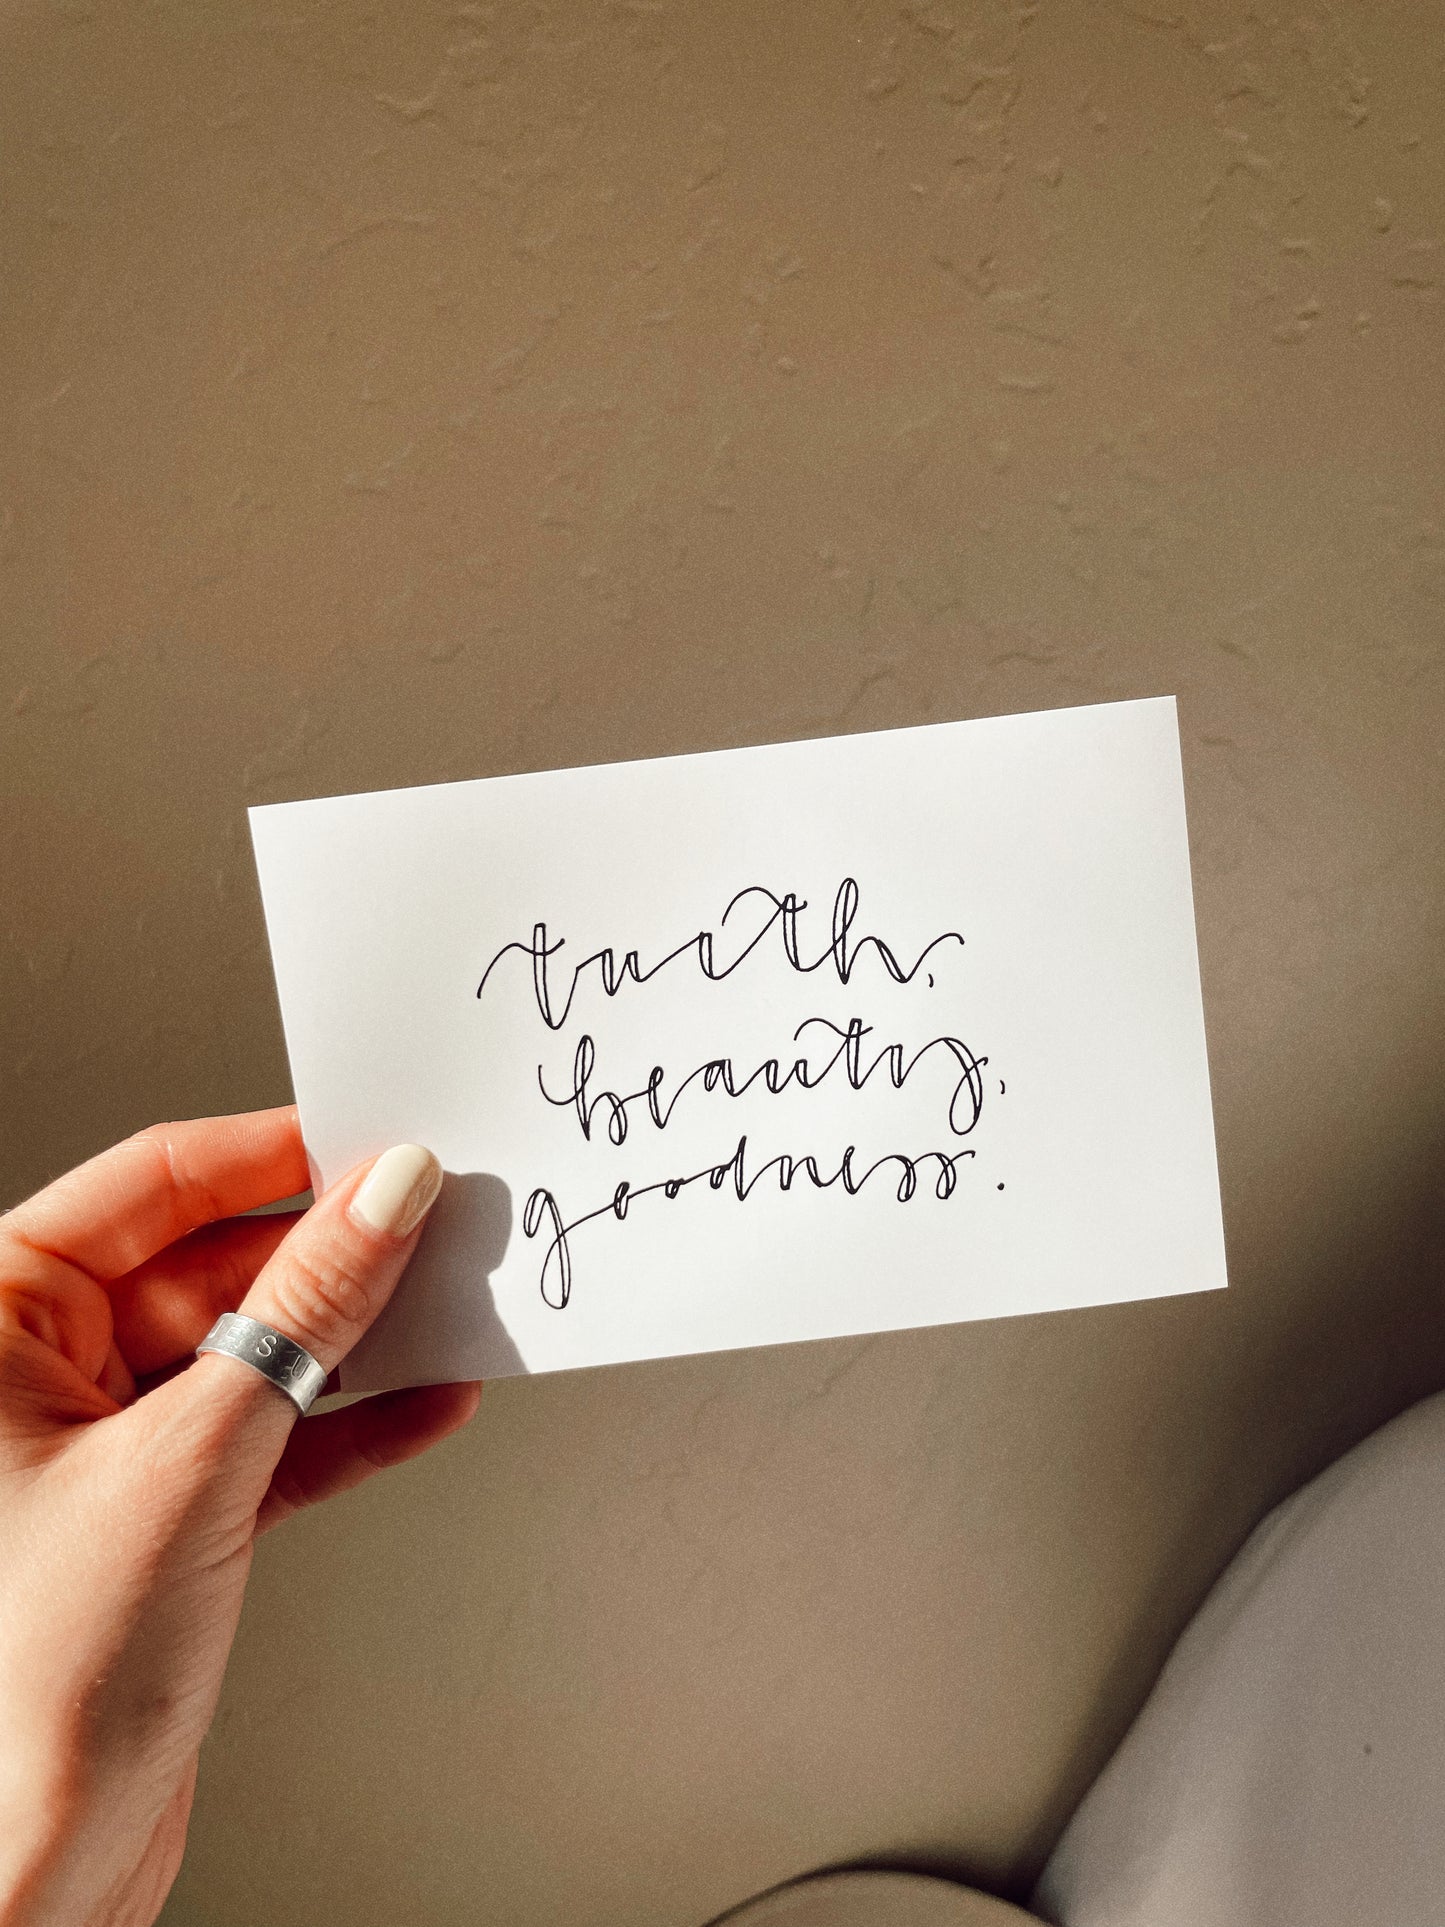 truth,
beauty,
goodness.
JESU